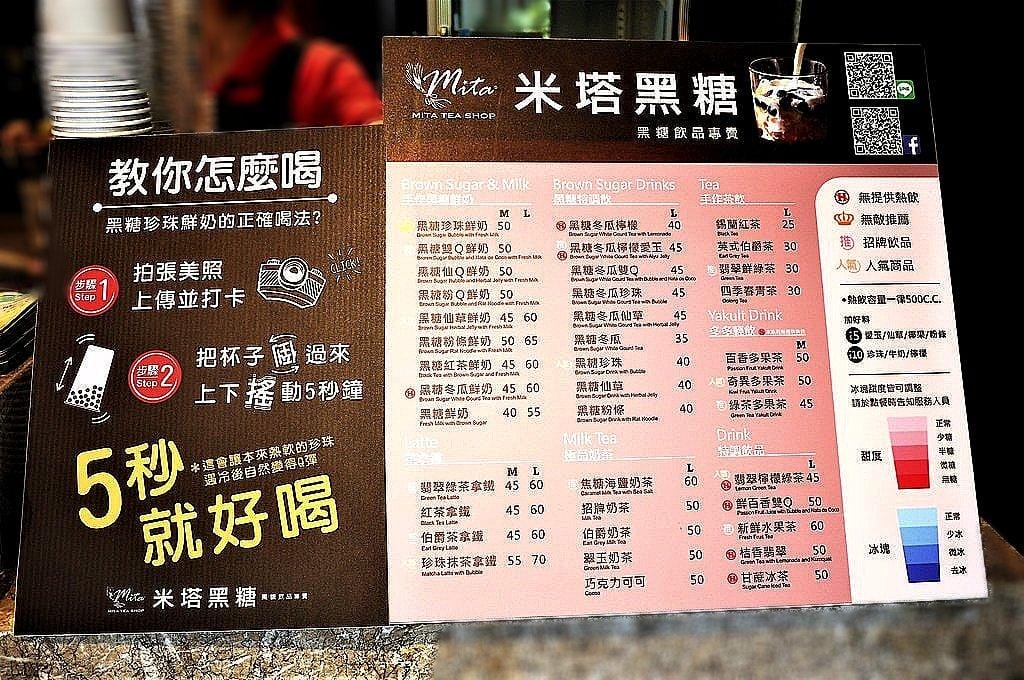 教你怎麼喝
黑糖珍珠鮮奶的正確喝法?
步驟
Step 1
拍張美照
上傳並打卡
CLICK!
步驟
Step 2
把杯子 過來
上下搖動5秒鐘
5秒
就好喝
*這會讓本來熱軟的珍珠
遇冷後自然變得Q彈
Mita
MITA TEA SHOP
米塔黑糖 黑糖飲品專賣
Mita
MITA TEA SHOP
米塔黑糖
黑糖飲品專賣
LINE
f
Brown Sugar & Milk
手作黑糖鮮奶
M L
黑糖珍珠鮮奶 50
Brown Sugar Bubble with Fresh Milk
黑糖雙Q鮮奶 50
Brown Sugar Bubble and Nata de Coco with Fresh Milk
黑糖仙Q鮮奶 50
Brown Sugar Bubble and Herbal Jelly with Fresh Milk
黑糖粉Q鮮奶 50
Brown Sugar Bubble and Rat Noodle with Fresh Milk
黑糖仙草鮮奶 45 60
Brown Sugar Herbal Jelly with Fresh Milk
黑糖粉條鮮奶 50 65
Brown Sugar Rat Noodle with Fresh Milk
黑糖紅茶鮮奶 45 60
Black Tea with Brown Sugar and Fresh Milk
H 黑糖冬瓜鮮奶 45 60
Brown Sugar White Gourd Tea with Fresh Milk
黑糖鮮奶 40 55
Fresh Milk with Brown Sugar
Latte
M L
翡翠綠茶拿鐵 45 60
Green Tea Latte
紅茶拿鐵 45 60
Black Tea Latte
伯爵茶拿鐵 45 60
Earl Grey Latte
珍珠抹茶拿鐵 55 70
Matcha Latte with Bubble
Brown Sugar Drinks
黑糖特調飲
L
H 黑糖冬瓜檸檬 40
Brown Sugar White Gourd Tea with Lemonade
H 黑糖冬瓜檸檬愛玉 45
Brown Sugar White Gourd Tea with Aiyu Jelly
黑糖冬瓜雙Q 45
Brown Sugar White Gourd Tea with Bubble and Nata de Coco
黑糖冬瓜珍珠 45
Brown Sugar White Gourd Tea with Bubble
黑糖冬瓜仙草 45
Brown Sugar White Gourd Tea with Herbal Jelly
黑糖冬瓜 35
Brown Sugar White Gourd Tea
黑糖珍珠 40
Brown Sugar Drink with Bubble
黑糖仙草 40
Brown Sugar Drink with Herbal Jelly
黑糖粉條 40
Brown Sugar Drink with Rat Noodle
Milk Tea
極品奶茶
L
焦糖海鹽奶茶 60
Caramel Milk Tea with Sea Salt
招牌奶茶 50
Milk Tea
伯爵奶茶 50
Earl Grey Milk Tea
翠玉奶茶 50
Green Milk Tea
巧克力可可 50
Cocoa
Tea
手作茶飲
L
錫蘭紅茶 25
Black Tea
英式伯爵茶 30
Earl Grey Tea
翡翠鮮綠茶 30
Green Tea
四季春青茶 30
Oolong Tea
Yakult Drink
多多釀飲
M
百香多果茶 50
Passion Fruit Yakult Drink
奇異多果茶 50
Kiwi Fruit Yakult Drink
綠茶多果茶 45
Green Tea Yakult Drink
Drink
特製飲品
L
H 翡翠檸檬綠茶 45
Lemon Green Tea
H 鮮百香雙Q 50
Passion Fruit Juice with Bubble and Nata de Coco
新鮮水果茶 60
Fresh Fruit Tea
H 桔香翡翠 50
Green Tea with Lemonade and Kumquat
H 甘蔗冰茶 50
Sugar Cane Iced Tea
H 無提供熱飲
無敵推薦
推 招牌飲品
人氣 人氣商品
•熱飲容量一律500C.C.
加好料
+5 愛玉/仙草/椰果/粉條
+10 珍珠/牛奶/檸檬
冰塊甜度皆可調整
請於點餐時告知服務人員
甜度
正常
少糖
半糖
微糖
無糖
冰塊
正常
少冰
微冰
去冰